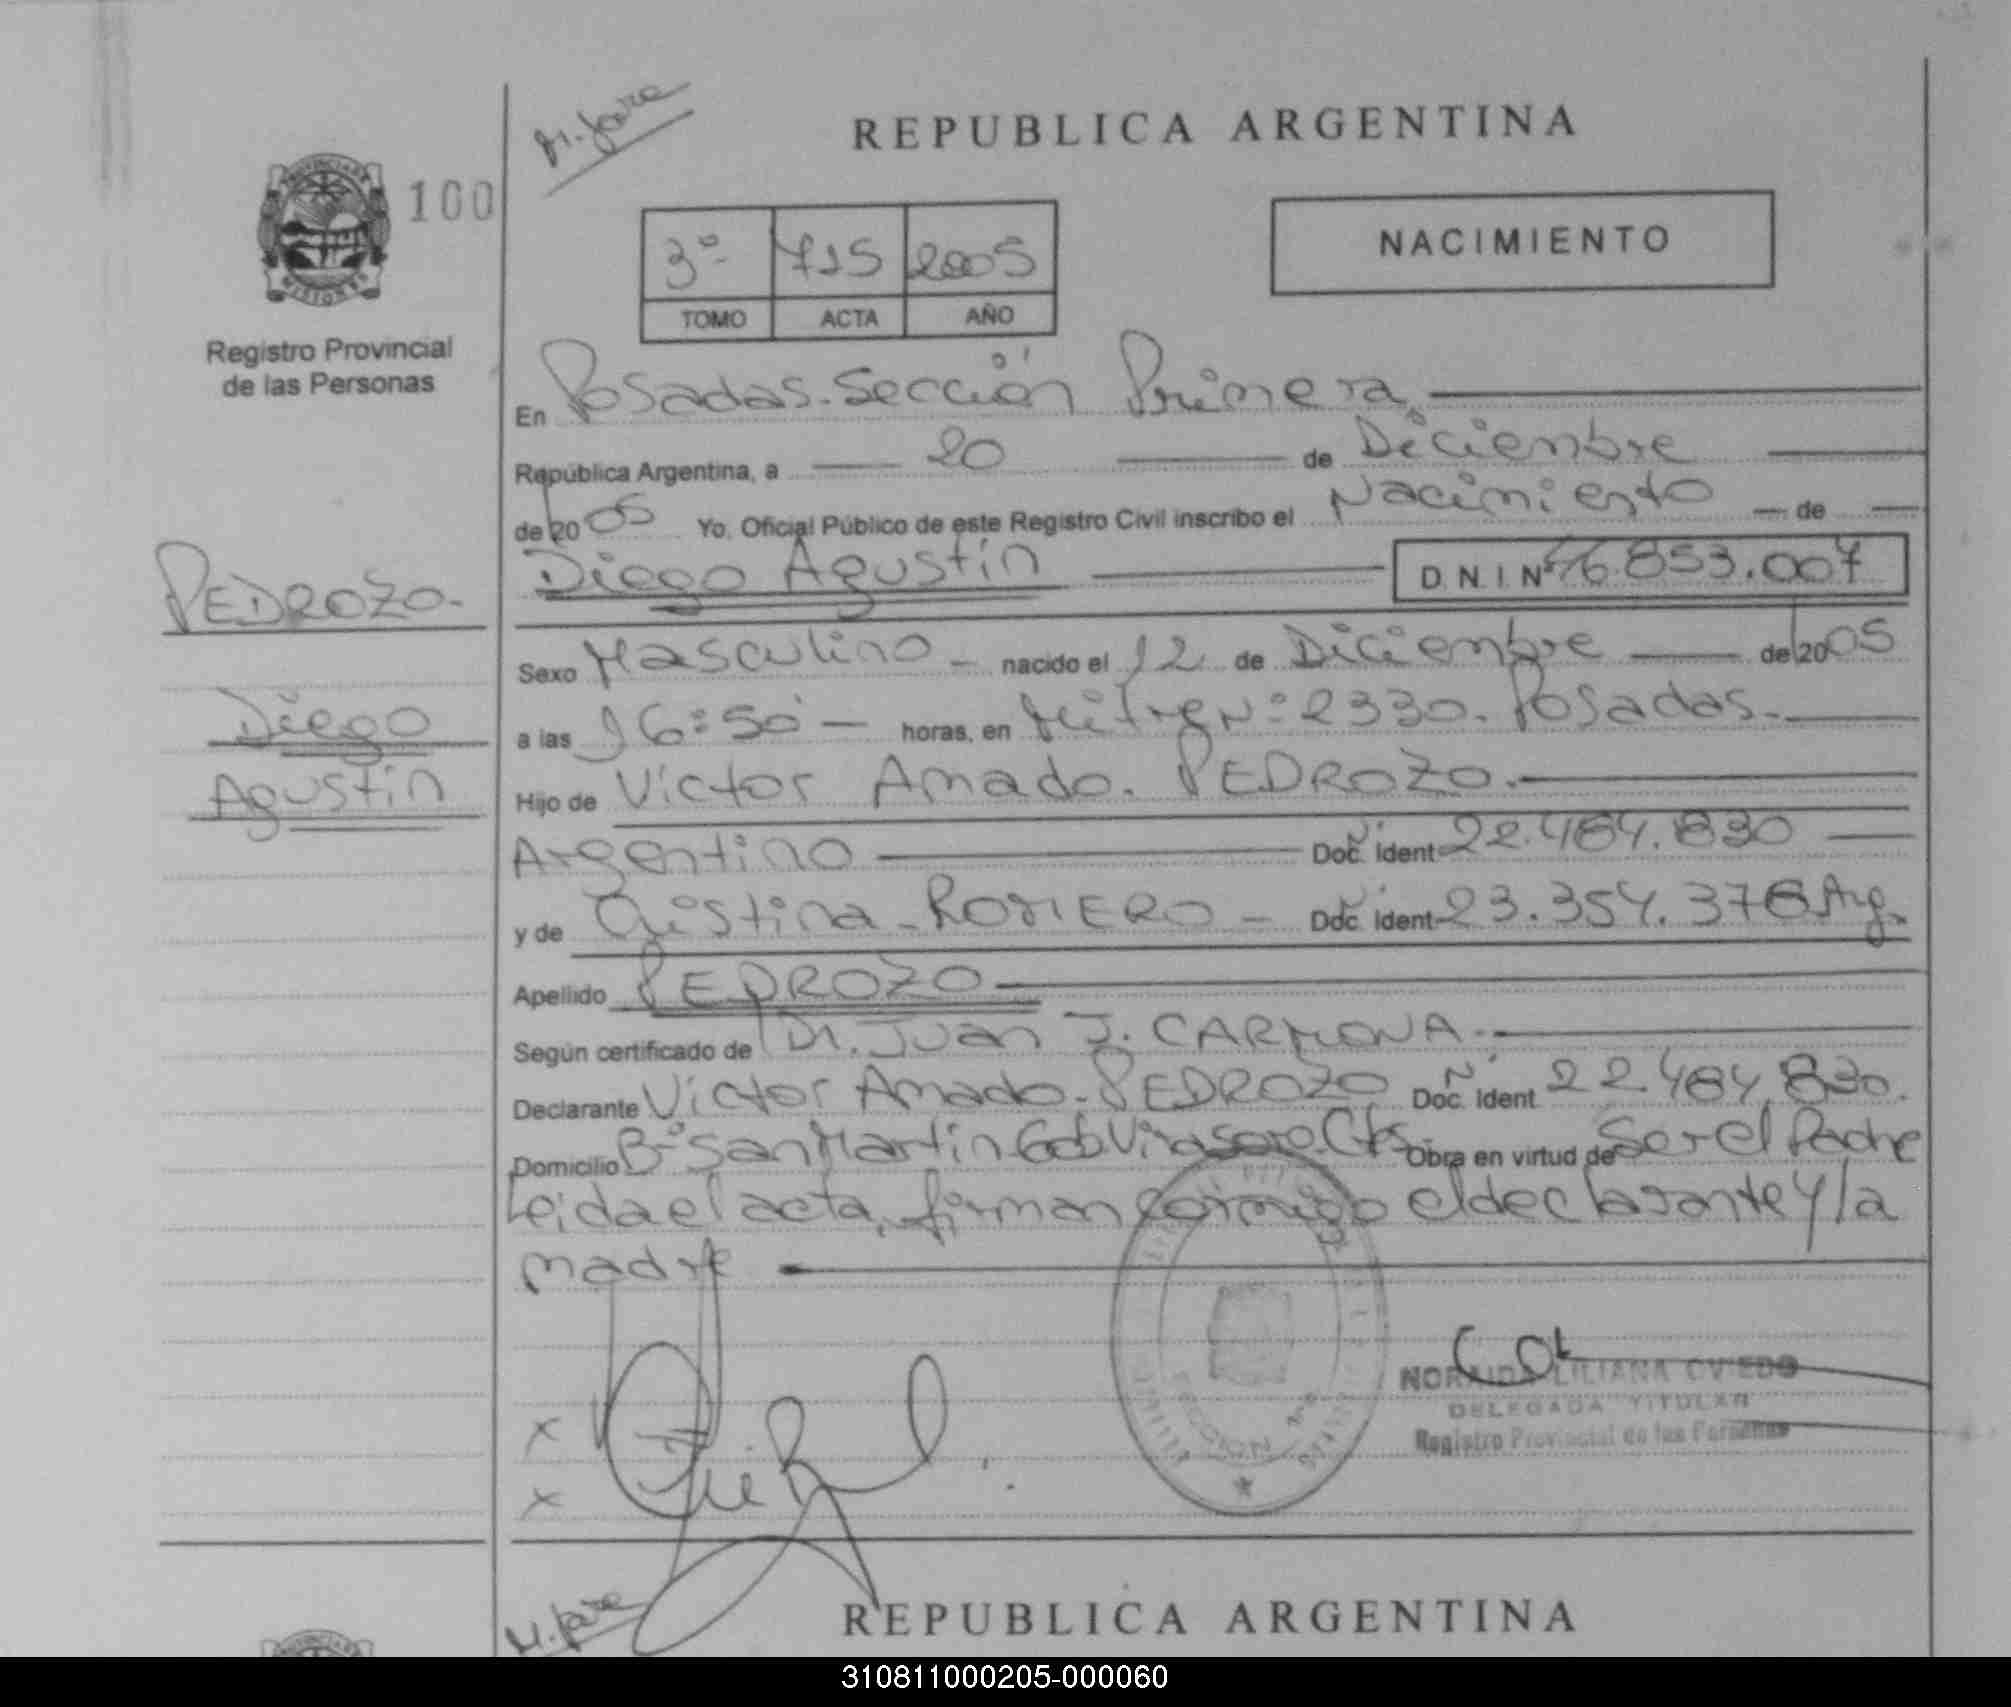 M. Jare
REPUBLICA ARGENTINA
100
NACIMIENTO
3º 715 2005
TOMO ACTA AÑO
PROVINCIA DE
MISIONES
Registro Provincial
de las Personas
En Posadas. Sección Primera
República Argentina, a 20 de Diciembre
de 2005 Yo, Oficial Público de este Registro Civil inscribo el Nacimiento de
Diego Agustín D.N.I. Nº 46.853.007
PEDROZO
Sexo Masculino nacido el 12 de Diciembre de 2005
Diego
a las 16:50 horas, en Mitre Nº 2330. Posadas.
Agustín
Hijo de Víctor Amado. PEDROZO.
Argentino Doc. Ident 22.484.830
y de Cristina ROMERO Doc. Ident 23.354.376 Arg.
Apellido PEDROZO
Según certificado de Dr. Juan J. CARMONA
Declarante Víctor Amado. PEDROZO Nº Doc. Ident 22.484.830.
Domicilio Bº San Martín Gob Virasoro. Ctes Obra en virtud de Ser el Padre
Leida el acta, firman conmigo el declarante y la
madre
NORAIDA LILIANA OVIEDO
DELEGADA TITULAR
Registro Provincial de las Personas
X
X
SECCION
M. Jare
REPUBLICA ARGENTINA
310811000205-000060